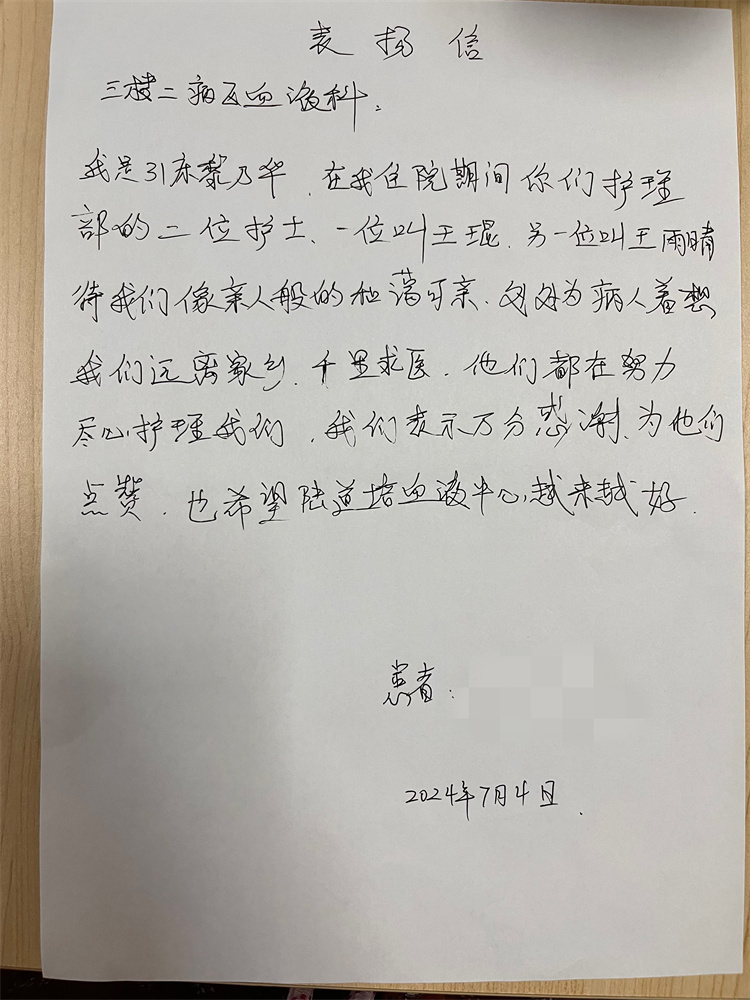 表扬信
三楼二病区血液科：
我是31床黎乃华．在我住院期间你们护理
部的二位护士、一位叫王琨．另一位叫王雨晴
待我们像亲人般的和蔼可亲．处处为病人着想
我们远离家乡．千里求医．他们都在努力
尽心护理我们．我们表示万分感谢．为他们
点赞．也希望陆道培血液中心越来越好．
患者：
2024年7月4日．